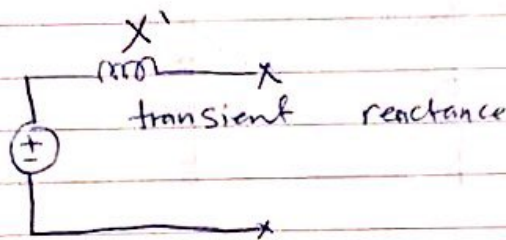 X'
transient reactance